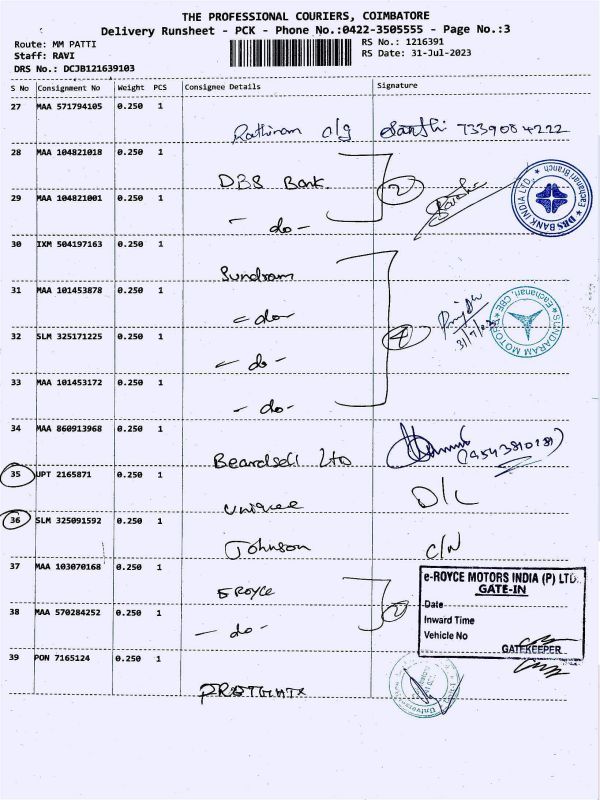 THE PROFESSIONAL COURIERS, COIMBATORE
Delivery Runsheet - PCK - Phone No.:0422-3505555 - Page No.:3
Route: MM PATTI
RS No.: 1216391
Staff: RAVI
RS Date: 31-Jul-2023
DRS No.: DCJB121639103
S No Consignment No Weight PCS Consignee Details Signature
27 MAA 571794105 0.250 1
Rathinam c/g Santhi 7339084222
28 MAA 104821018 0.250 1
DBS Bank
2
DBS BANK INDIA LTD. Eachanari Branch
29 MAA 104821001 0.250 1
- do -
30 IXM 504197163 0.250 1
Sundram
31 MAA 101453878 0.250 1
- do -
31/7/23
SUNDARAM MOTORS Eachanari, CBE
32 SLM 325171225 0.250 1
4
- do -
33 MAA 101453172 0.250 1
- do -
34 MAA 860913968 0.250 1
Beardsell Ltd
(9543810181)
35 UPT 2165871 0.250 1
unique D/L
36 SLM 325091592 0.250 1
Johnson C/N
37 MAA 103070168 0.250 1
EROYCE
2
e-ROYCE MOTORS INDIA (P) LTD.
GATE-IN
Date
Inward Time
Vehicle No
GATEKEEPER
38 MAA 570284252 0.250 1
- do -
39 PON 7165124 0.250 1